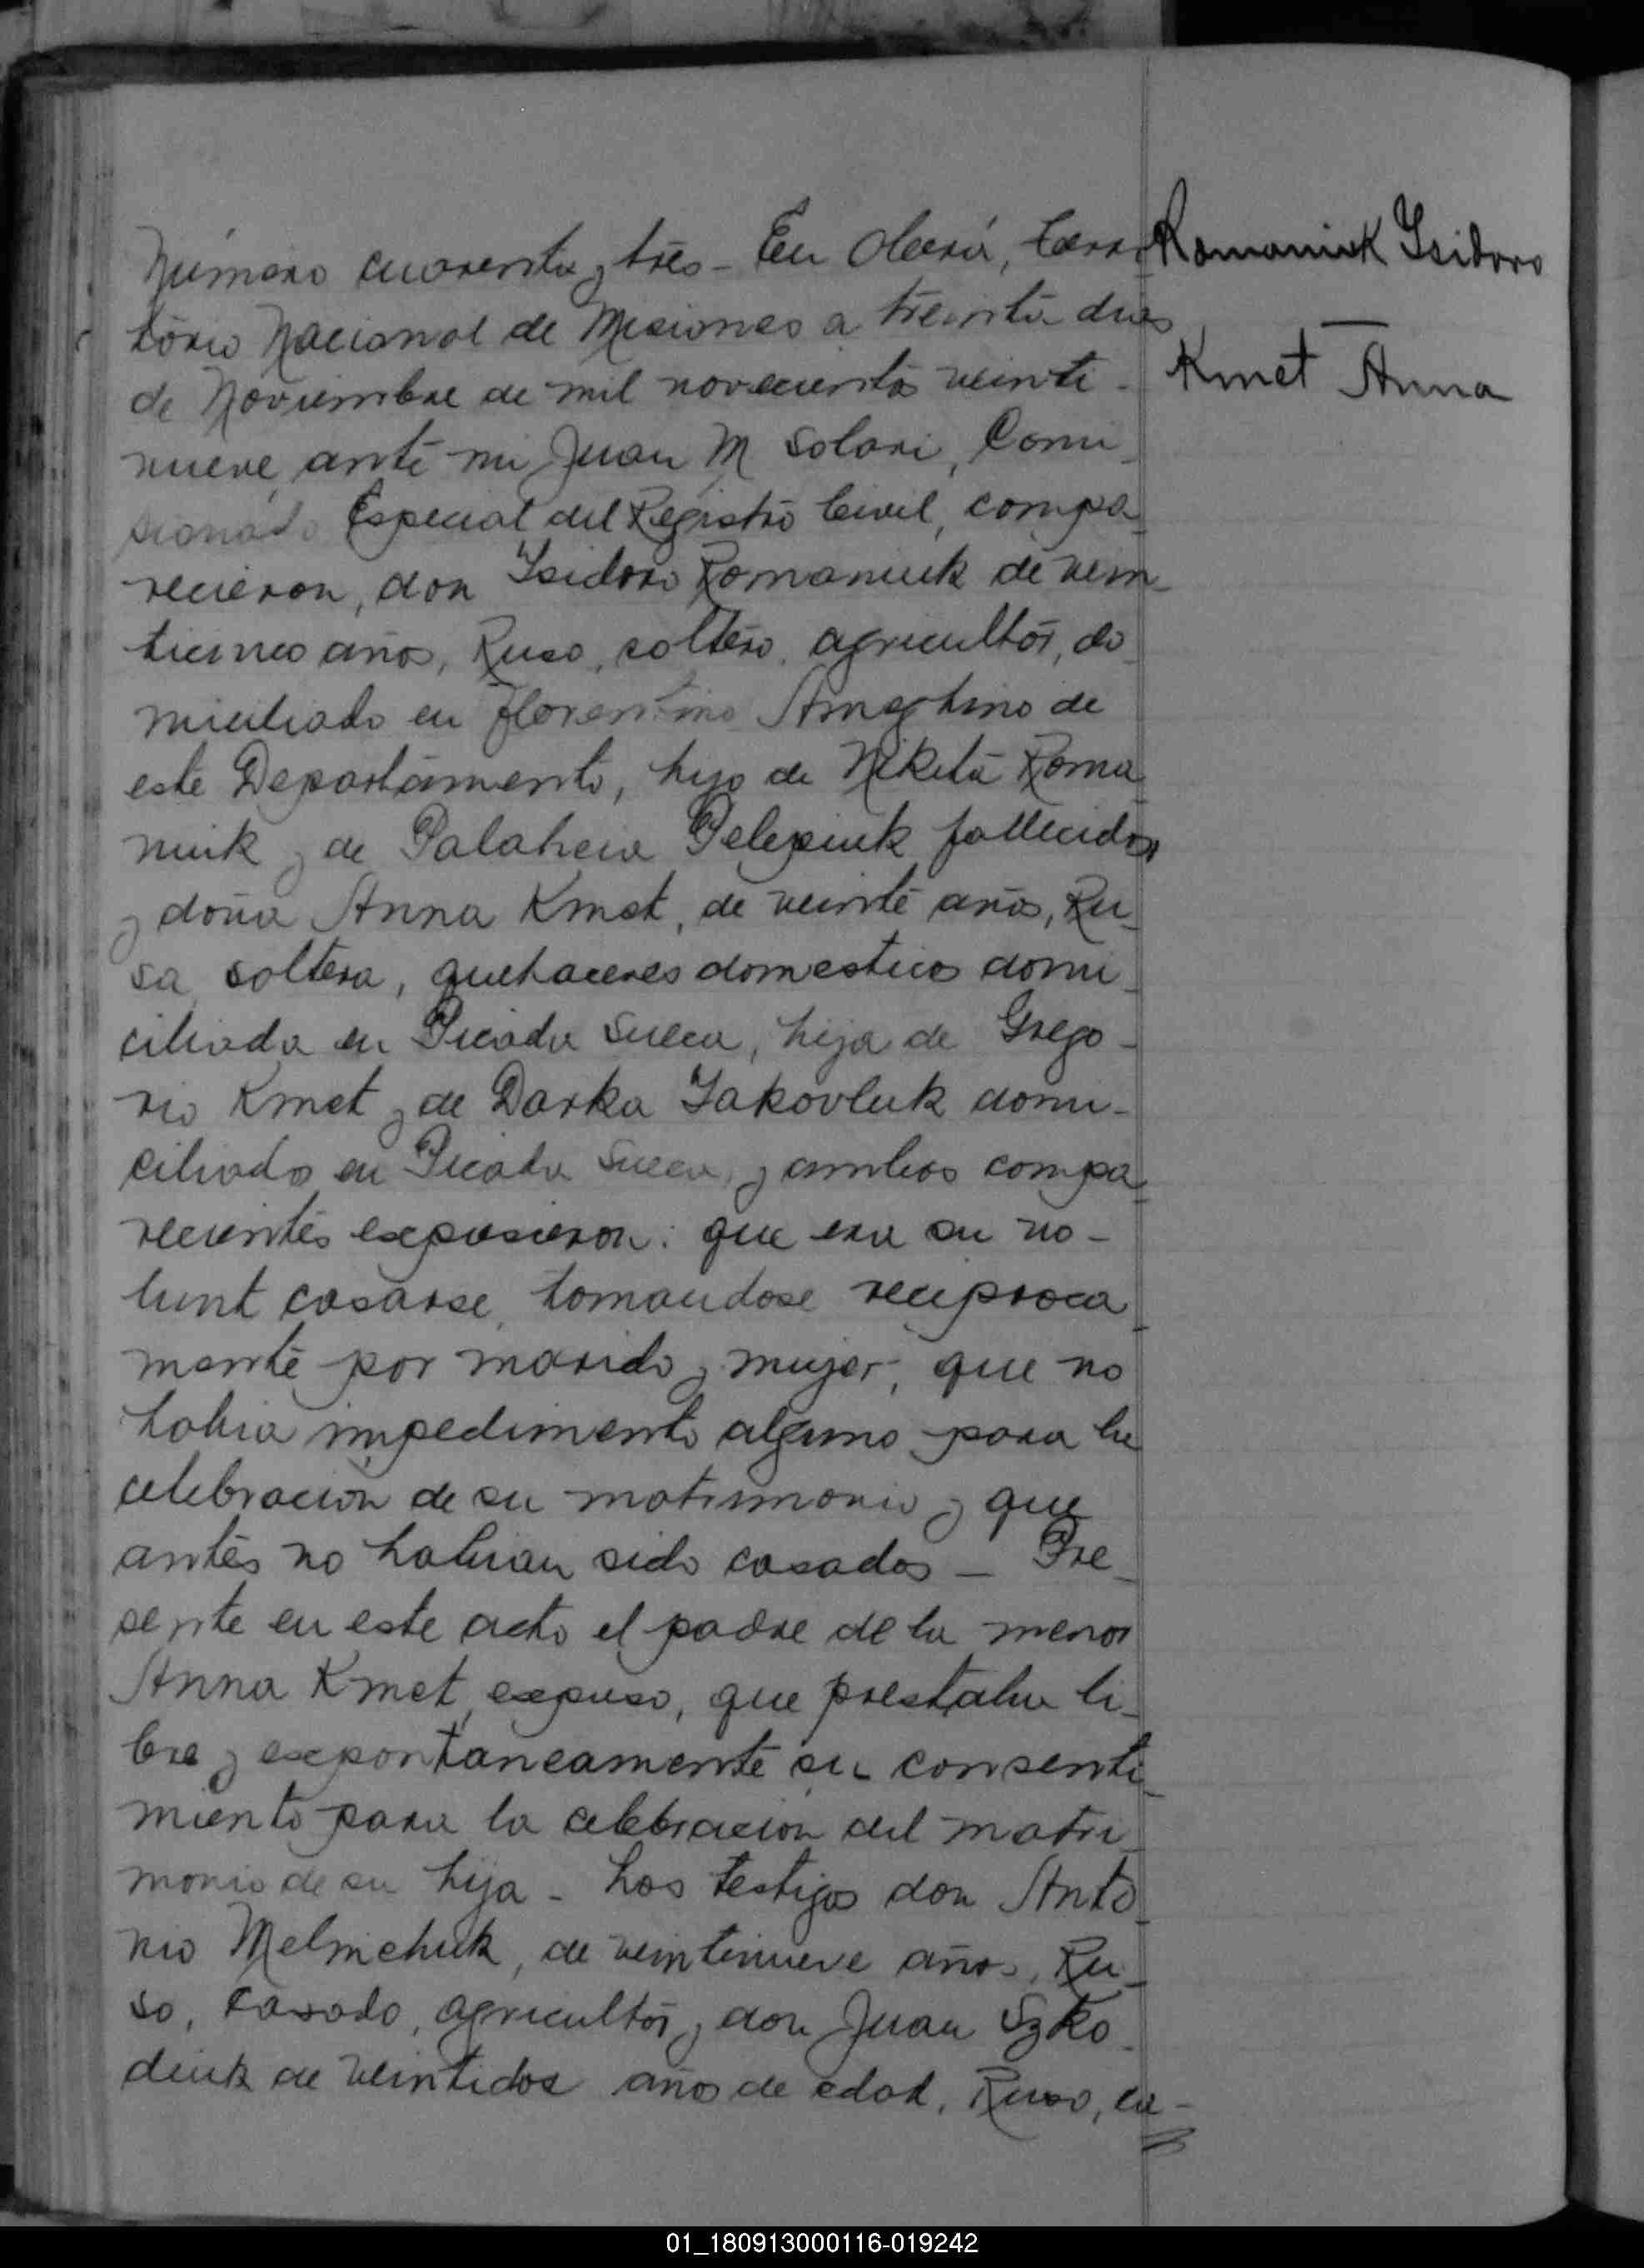 Número cuarenta y tres - En Oberá, Terri
Romaniuk Isidoro
torio Nacional de Misiones a treinta dias
de Noviembre de mil novecientos veinti-
Kmet Anna
nueve, ante mi Juan M Solari, Comi-
sionado Especial del Registro Civil, compa-
recieron, don Isidoro Romaniuk de vein-
ticinco años, Ruso, soltero, agricultor, do-
miciliado en Florentino Ameghino de
este Departamento, hijo de Nikita Roma-
niuk y de Palaheia fallecidos,
y doña Anna Kmet, de veinte años, Ru-
sa, soltera, quehaceres domesticos domi-
ciliada en Picada Sueca, hija de Grego-
rio Kmet y de Darka Jakovluk domi-
ciliados en Picada Sueca, y ambos compa-
recientes expusieron: que era su vo-
lunt casarse, tomandose reciproca-
mente por marido y mujer, que no
habia impedimento alguno para la
celebración de su matrimonio y que
antes no habian sido casados - Pre-
sente en este acto el padre de la menor
Anna Kmet, expuso, que prestaba li-
bre y expontaneamente su consenti-
miento para la celebración del matri-
monio de su hija - Los testigos don Anto-
nio Melnichuk, de veintinueve años, Ru-
so, casado, agricultor y don Juan Szko-
diuk de veintidos años de edad, Ruso, ca-
01_180913000116-019242